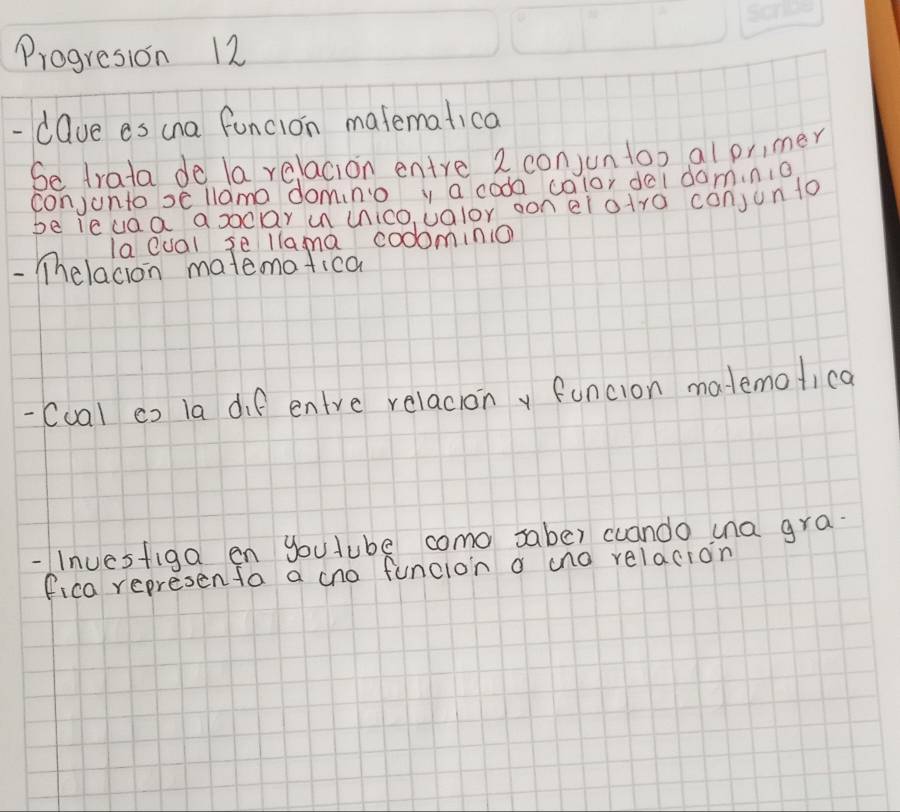 Progresión 12
- ¿Que es una función matematica
Se trata de la relación entre 2 conjuntos al primer
conjunto se llama dominio y a cada calor del dominio
se le va a asociar un unico valor con el otro conjunto
la cual se llama codominio
- Rhelación matematica
- Cual es la dif entre relación y funcion matematica
- Investiga en youtube como saber cuando una gra-
fica representa a una función o una relación